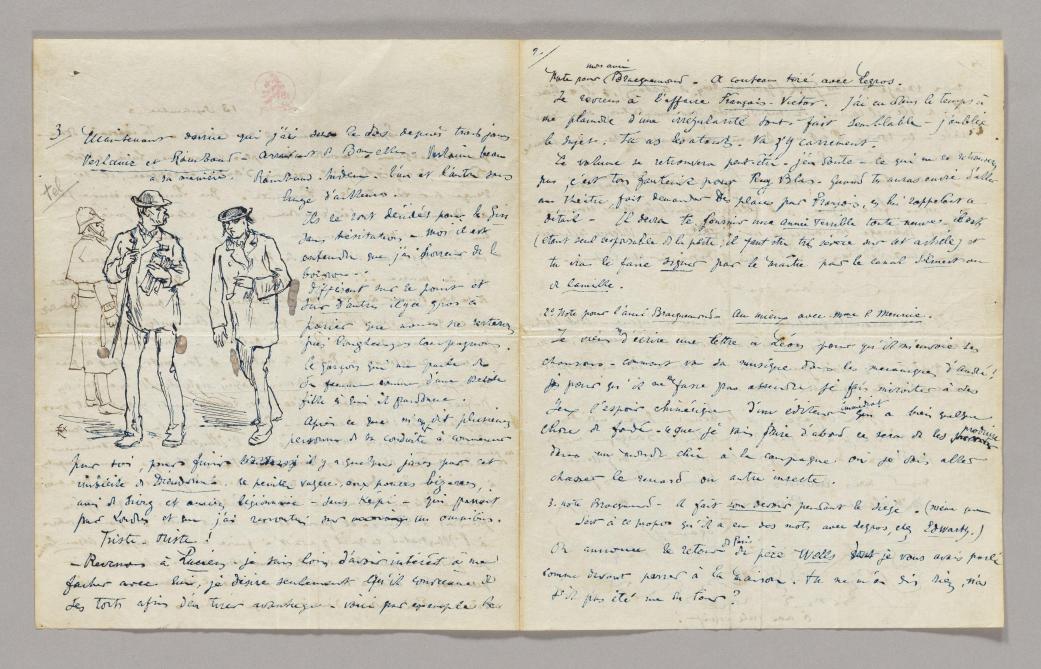 3
Maintenant devine qui j'ai sur le dos depuis trois jours
Verlaine et Rimbaud - arrivant de Bruxelles - Verlaine beau
à sa manière. Rimbaud hideux. L'un et l'autre sans
linge d'ailleurs.
Ils se sont décidés pour le gin
sans hésitation - moi il est
entendu que j'ai horreur de la
boisson -
différent sur ce point et
sur d'autres il y a gros à
parier que nous ne resterons
pas longtemps compagnons.
Le garçon qui me parle de
sa femme comme d'une petite
fille à qui il pardonne.
Après ce que m'ont dit plusieurs
personnes de sa conduite à commencer
par toi, pour finir il y a quelques jours par cet
imbécile de
ami de et ancien légionnaire - sans képi - qui passait
par Londres et que j'ai rencontré sur un omnibus.
Triste - triste !
- Revenons à Lucien - je suis loin d'avoir intérêt à me
fâcher avec lui, je désire seulement qu'il connaisse
ses torts afin d'en tirer avantage - voici par exemple le
2/
mon ami
Note pour Bracquemond - A couteau tiré avec Legros.
Je reviens à l'affaire Français-Victor. J'ai eu dans le temps à
me plaindre d'une irrégularité tout à fait semblable - j'oublie
le sujet. Tu as le content. Vas-y carrément.
Le volume se retrouvera peut-être - j'en doute - ce qui ne se retrouvera
pas, c'est ton fauteuil pour Ruy Blas. Quand tu auras envie d'aller
au théâtre fait demander des places par François, en lui rappelant ce
détail - Il devra te fournir une année terrible toute neuve,
(étant seul responsable de la perte, il faut être très sévère sur cet article) et
tu iras le faire signer par le maître par le canal d'Ernest ou
de Camille.
2° Note pour l'ami Bracquemond - Au mieux avec Mme P. Meurice.
Je viens d'écrire une lettre à Léon pour qu'il m'envoie les
chansons - comment va sa musique dans les mécaniques d'André !
Et pour qu'il ne fasse pas attendre je fais miroiter à ses
yeux l'espoir chimérique d'un éditeur qui a bien quelque
chose de fondé - ce que je vais faire d'abord ce sera de les produire
dans un monde chic à la campagne où je dois aller
chasser le renard ou autre insecte.
3. note Bracquemond - a fait son devoir pendant le siège. (même que
c'est à ce propos qu'il a eu des mots avec Legros, chez Edwards.)
On annonce le retour de Paris du père Wells dont je vous avais parlé
comme devant passer à la maison. Tu ne m'en dis rien, n'a
t-il pas été me la tour ?